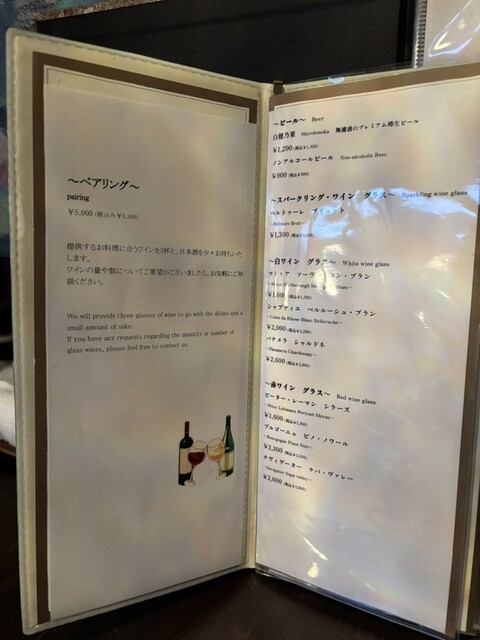 ～ペアリング～
pairing
￥5,000（税込み￥5,500）
提供するお料理に合うワインを3杯と、日本酒を少々お持ちいた
します。
ワインの量や数についてご要望がございましたら、お気軽にご相
談ください。
We will provide three glasses of wine to go with the dishes and a
small amount of sake.
If you have any requests regarding the quantity or number of
glass wines, please feel free to contact us.
～ビール～ Beer
白穂乃果 Shirohonoka 無濾過のプレミアム樽生ビール
￥1,200
ノンアルコールビール Non-alcoholic Beer
￥900
～スパークリング・ワイン グラス～ Sparkling wine glass
ベルトゥーレ ブリュット
Brut～
￥1,300
～白ワイン グラス～ White wine glass
ソーヴィニヨン・ブラン
シャプティエ ベルルーシュ・ブラン
～Cotes du Rhone Blanc Belleruche～
￥2,000
パナメラ シャルドネ
～Panamera Chardonnay～
￥2,600
～赤ワイン グラス～ Red wine glass
ピーター・レーマン シラーズ
～Peter Lehmann Portrait Shiraz～
￥1,600
ブルゴーニュ ピノ・ノワール
～Bourgogne Pinot Noir～
￥2,300
ナヴィゲーター ナパ・ヴァレー
～Navigator Napa valley～
￥2,600